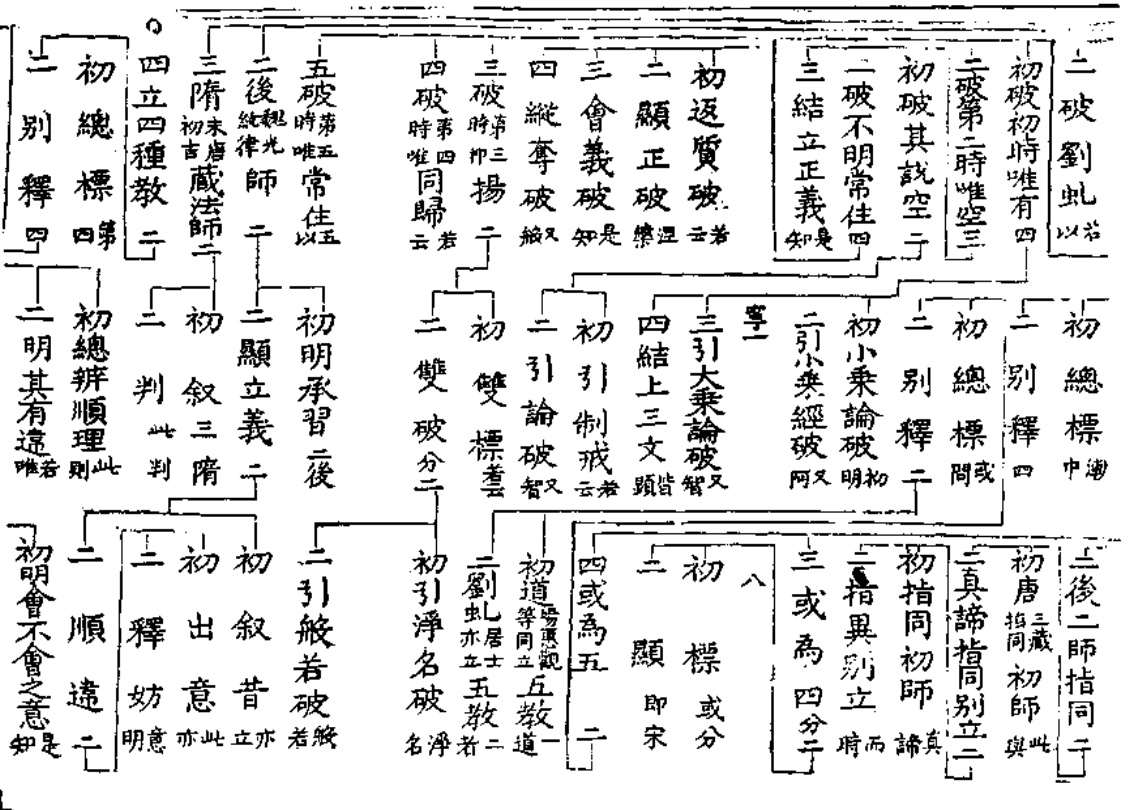 二破劉虬 若以
初破初時唯有 四
二破第二時唯空 三
初破其說空 二
二破不明常住 四
三結立正義 是知
初返質破 若云
二顯正破 涅槃
三會義破 是知
四縱奪破 又般
三破第三時抑揚 二
四破第四時唯同歸 若云
五破第五時唯常住 五以
二後魏光統律師 二
三隋末唐初吉藏法師 二
四立四種教 二
初總標 第四
二別釋 四
初總標
二別釋 四
初總標 或問
二別釋 二
初小乘論破 初明
二引小乘經破 又阿
寧一
三引大乘論破 又智
四結上三文 皆顯
初引制戒 若云
二引論破 又智
初雙標
二雙破 分二
初明承習 二後
二顯立義 二
初叙三 隋
二判 此判
初總辨順理 此則
二明其有違 若唯
二後二師指同 二
初唐三藏指同初師 此與
二真諦指同別立 二
初指同初師 真諦
二指異別立 而時
三或為四 分二
八
初標 或分
二顯 即宋
四或為五 二
初道場慧觀等同立五教 一道
二劉虬居士亦立五教 二若
初引淨名破 淨名
二引般若破 般若
初叙昔 亦立
初出意 此亦
二釋妨 意明
二順違 二
初明會不會之意 是知